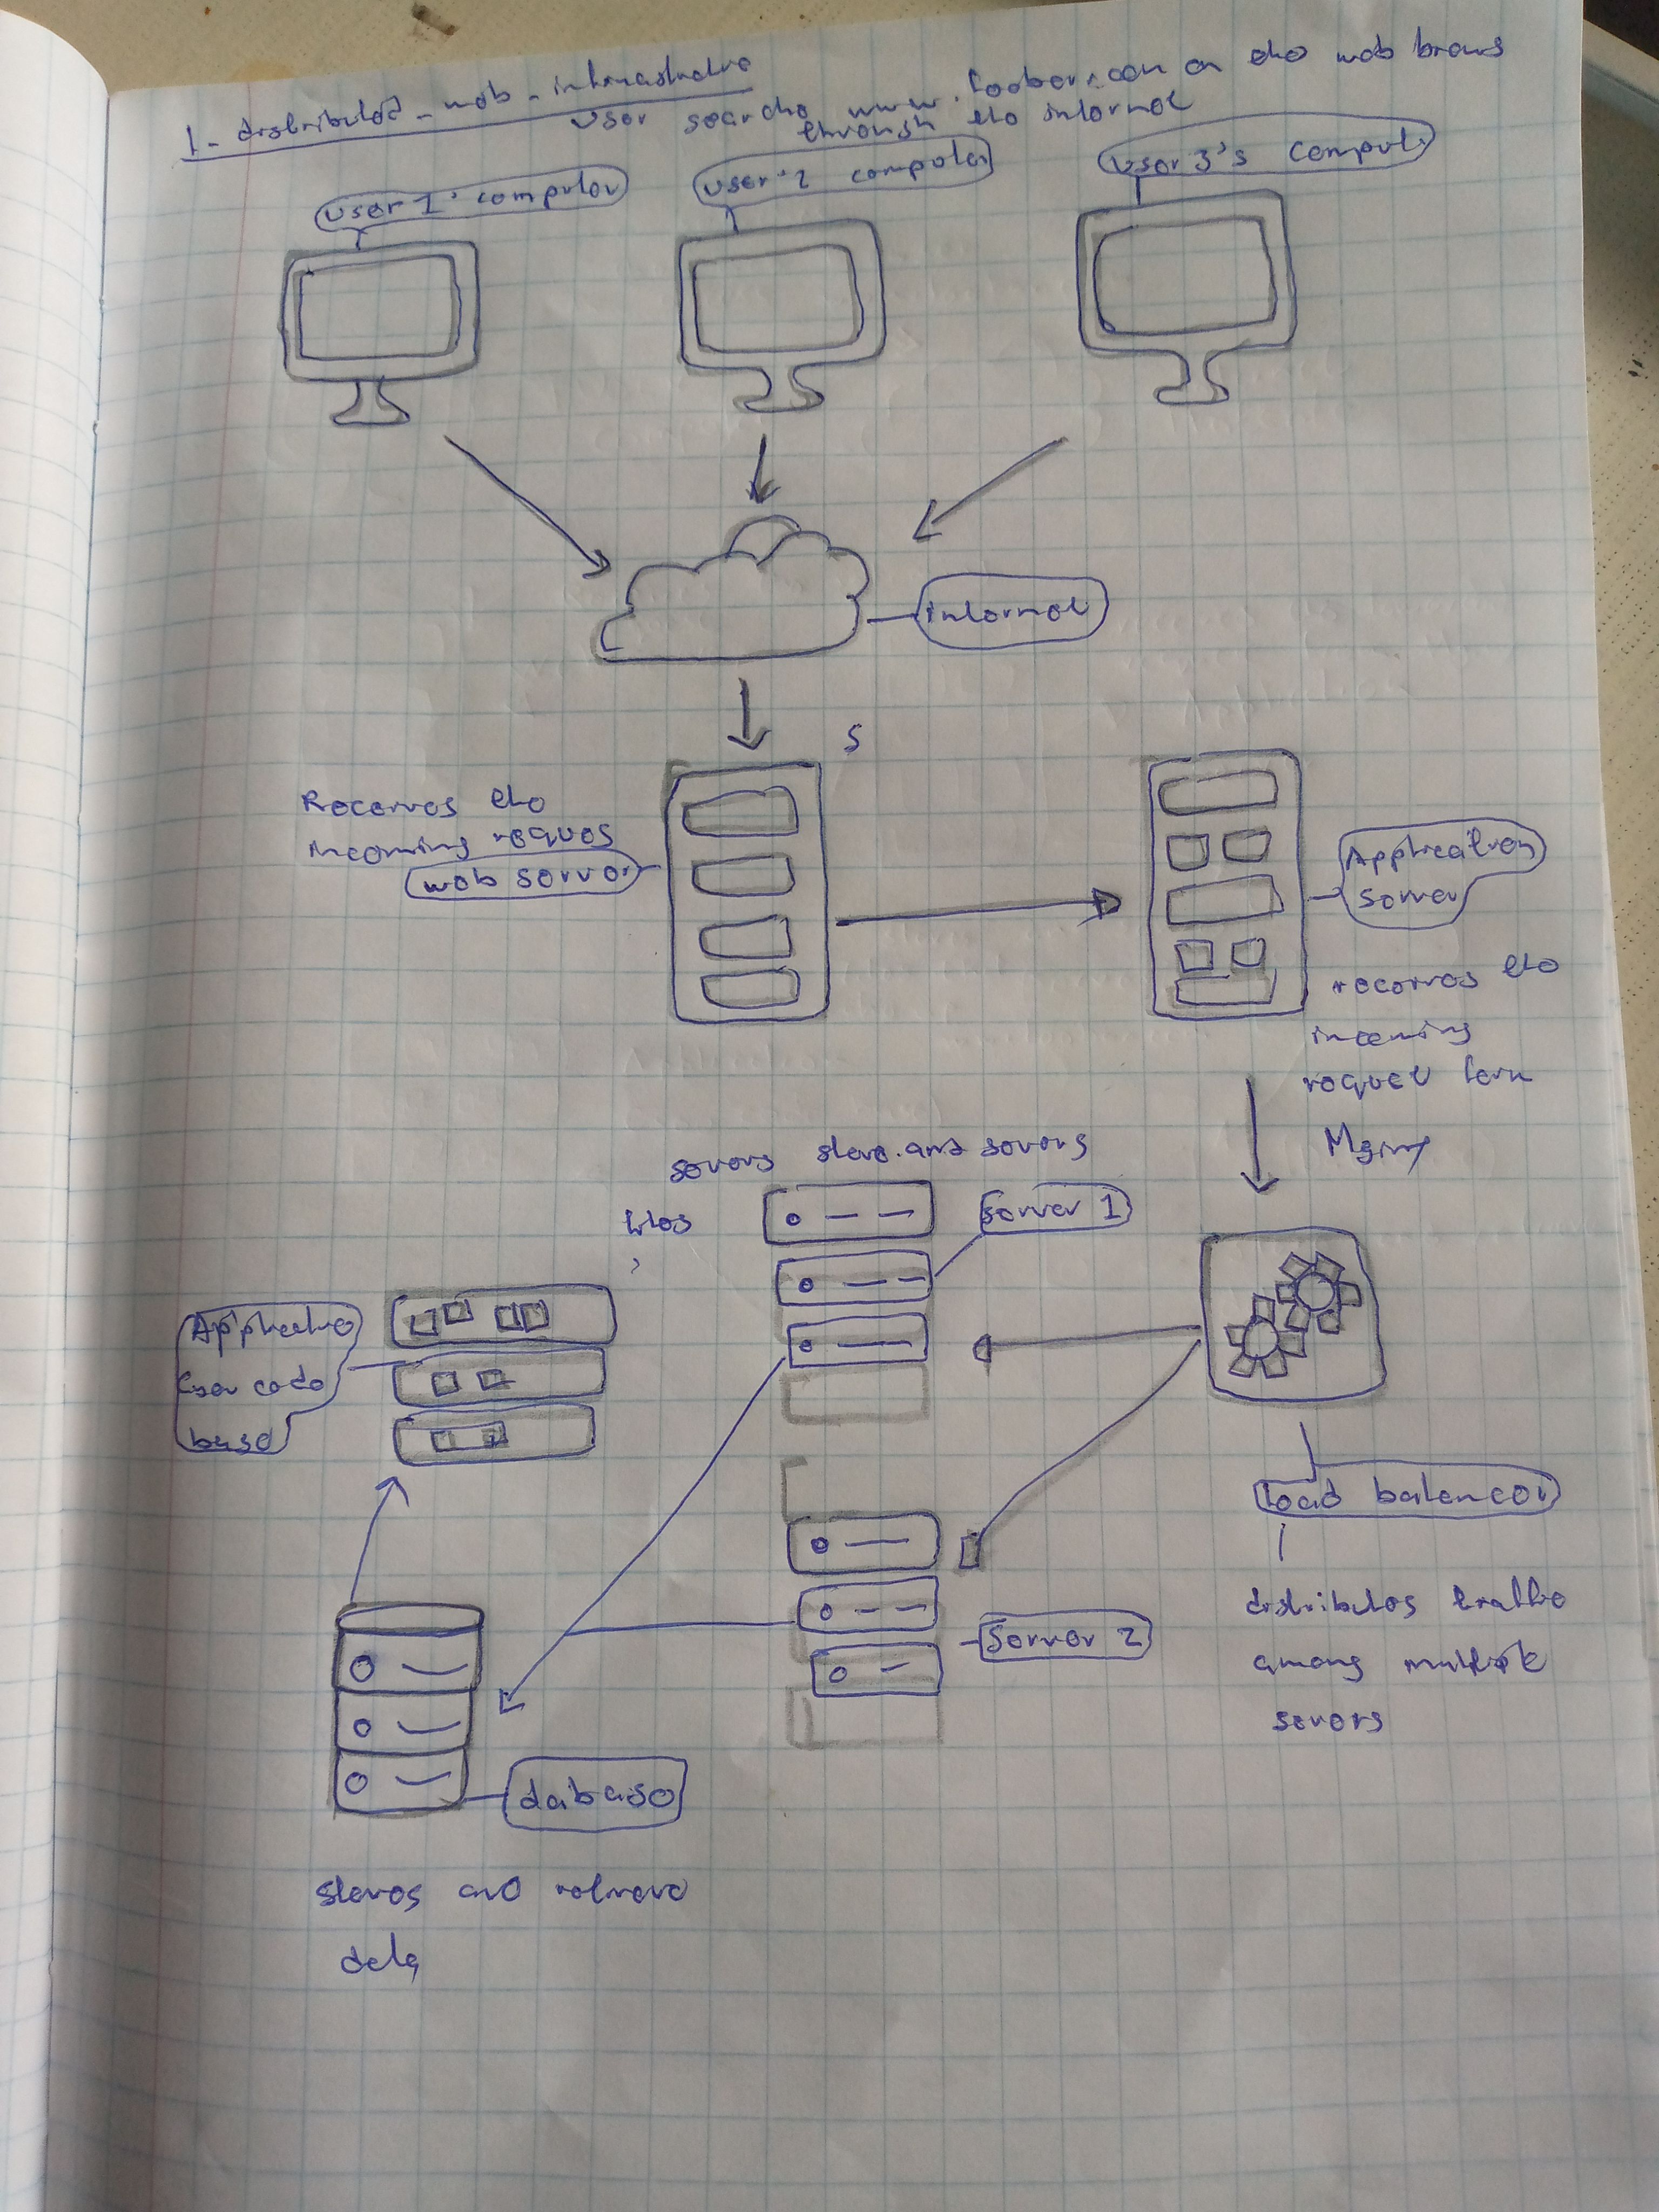 1- distributed - web - infrastructure
User searche www.foobar.com on the web brows
through the internet
User 1' computer
User 2 computer
User 3's comput.
internet
S
Receives the
incoming reques
web server
Application
server
receives the
incoming
request form
Nginx
servers store and servers
files
Server 1
Applicatio
code
base
load balancer
distributes traffic
among multiple
servers
Server 2
dabase
stores and retrieve
data